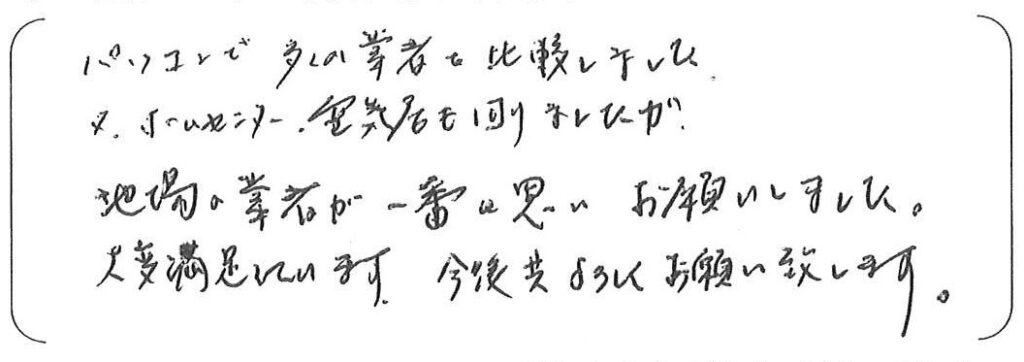 パソコンで多くの業者を比較しました。
又、ホームセンター、電気店も回りましたが、
地場の業者が一番と思い お願いしました。
大変満足しています。今後共よろしくお願い致します。